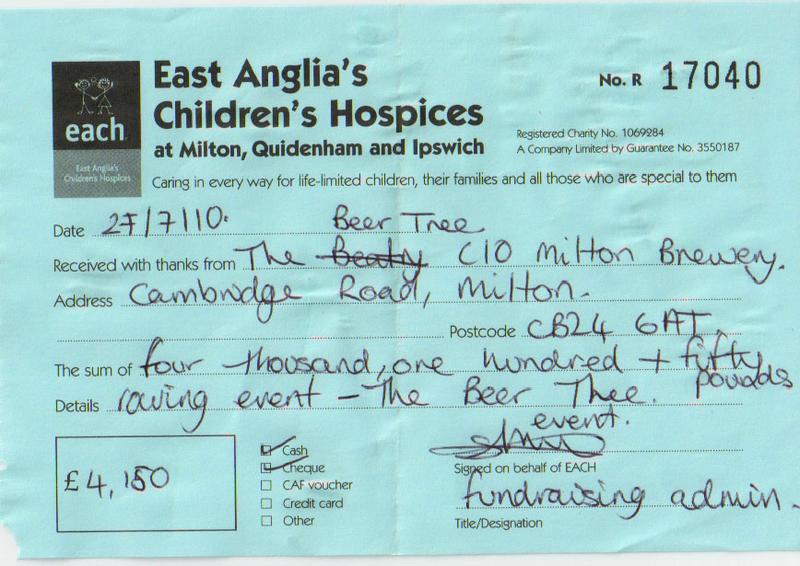 each
East Anglia's
Children's Hospices
East Anglia's
Children's Hospices
at Milton, Quidenham and Ipswich
No. R 17040
Registered Charity No. 1069284
A Company Limited by Guarantee No. 3550187
Caring in every way for life-limited children, their families and all those who are special to them
Date 27/7/10.
Beer Tree
Received with thanks from The Beaty C/O Milton Brewery.
Address Cambridge Road, Milton.
Postcode CB24 6AT.
The sum of four thousand, one hundred + fifty
pounds
Details rowing event - The Beer Thee.
event.
£4,150
Cash
Cheque
CAF voucher
Credit card
Other
Signed on behalf of EACH
fundraising admin.
Title/Designation